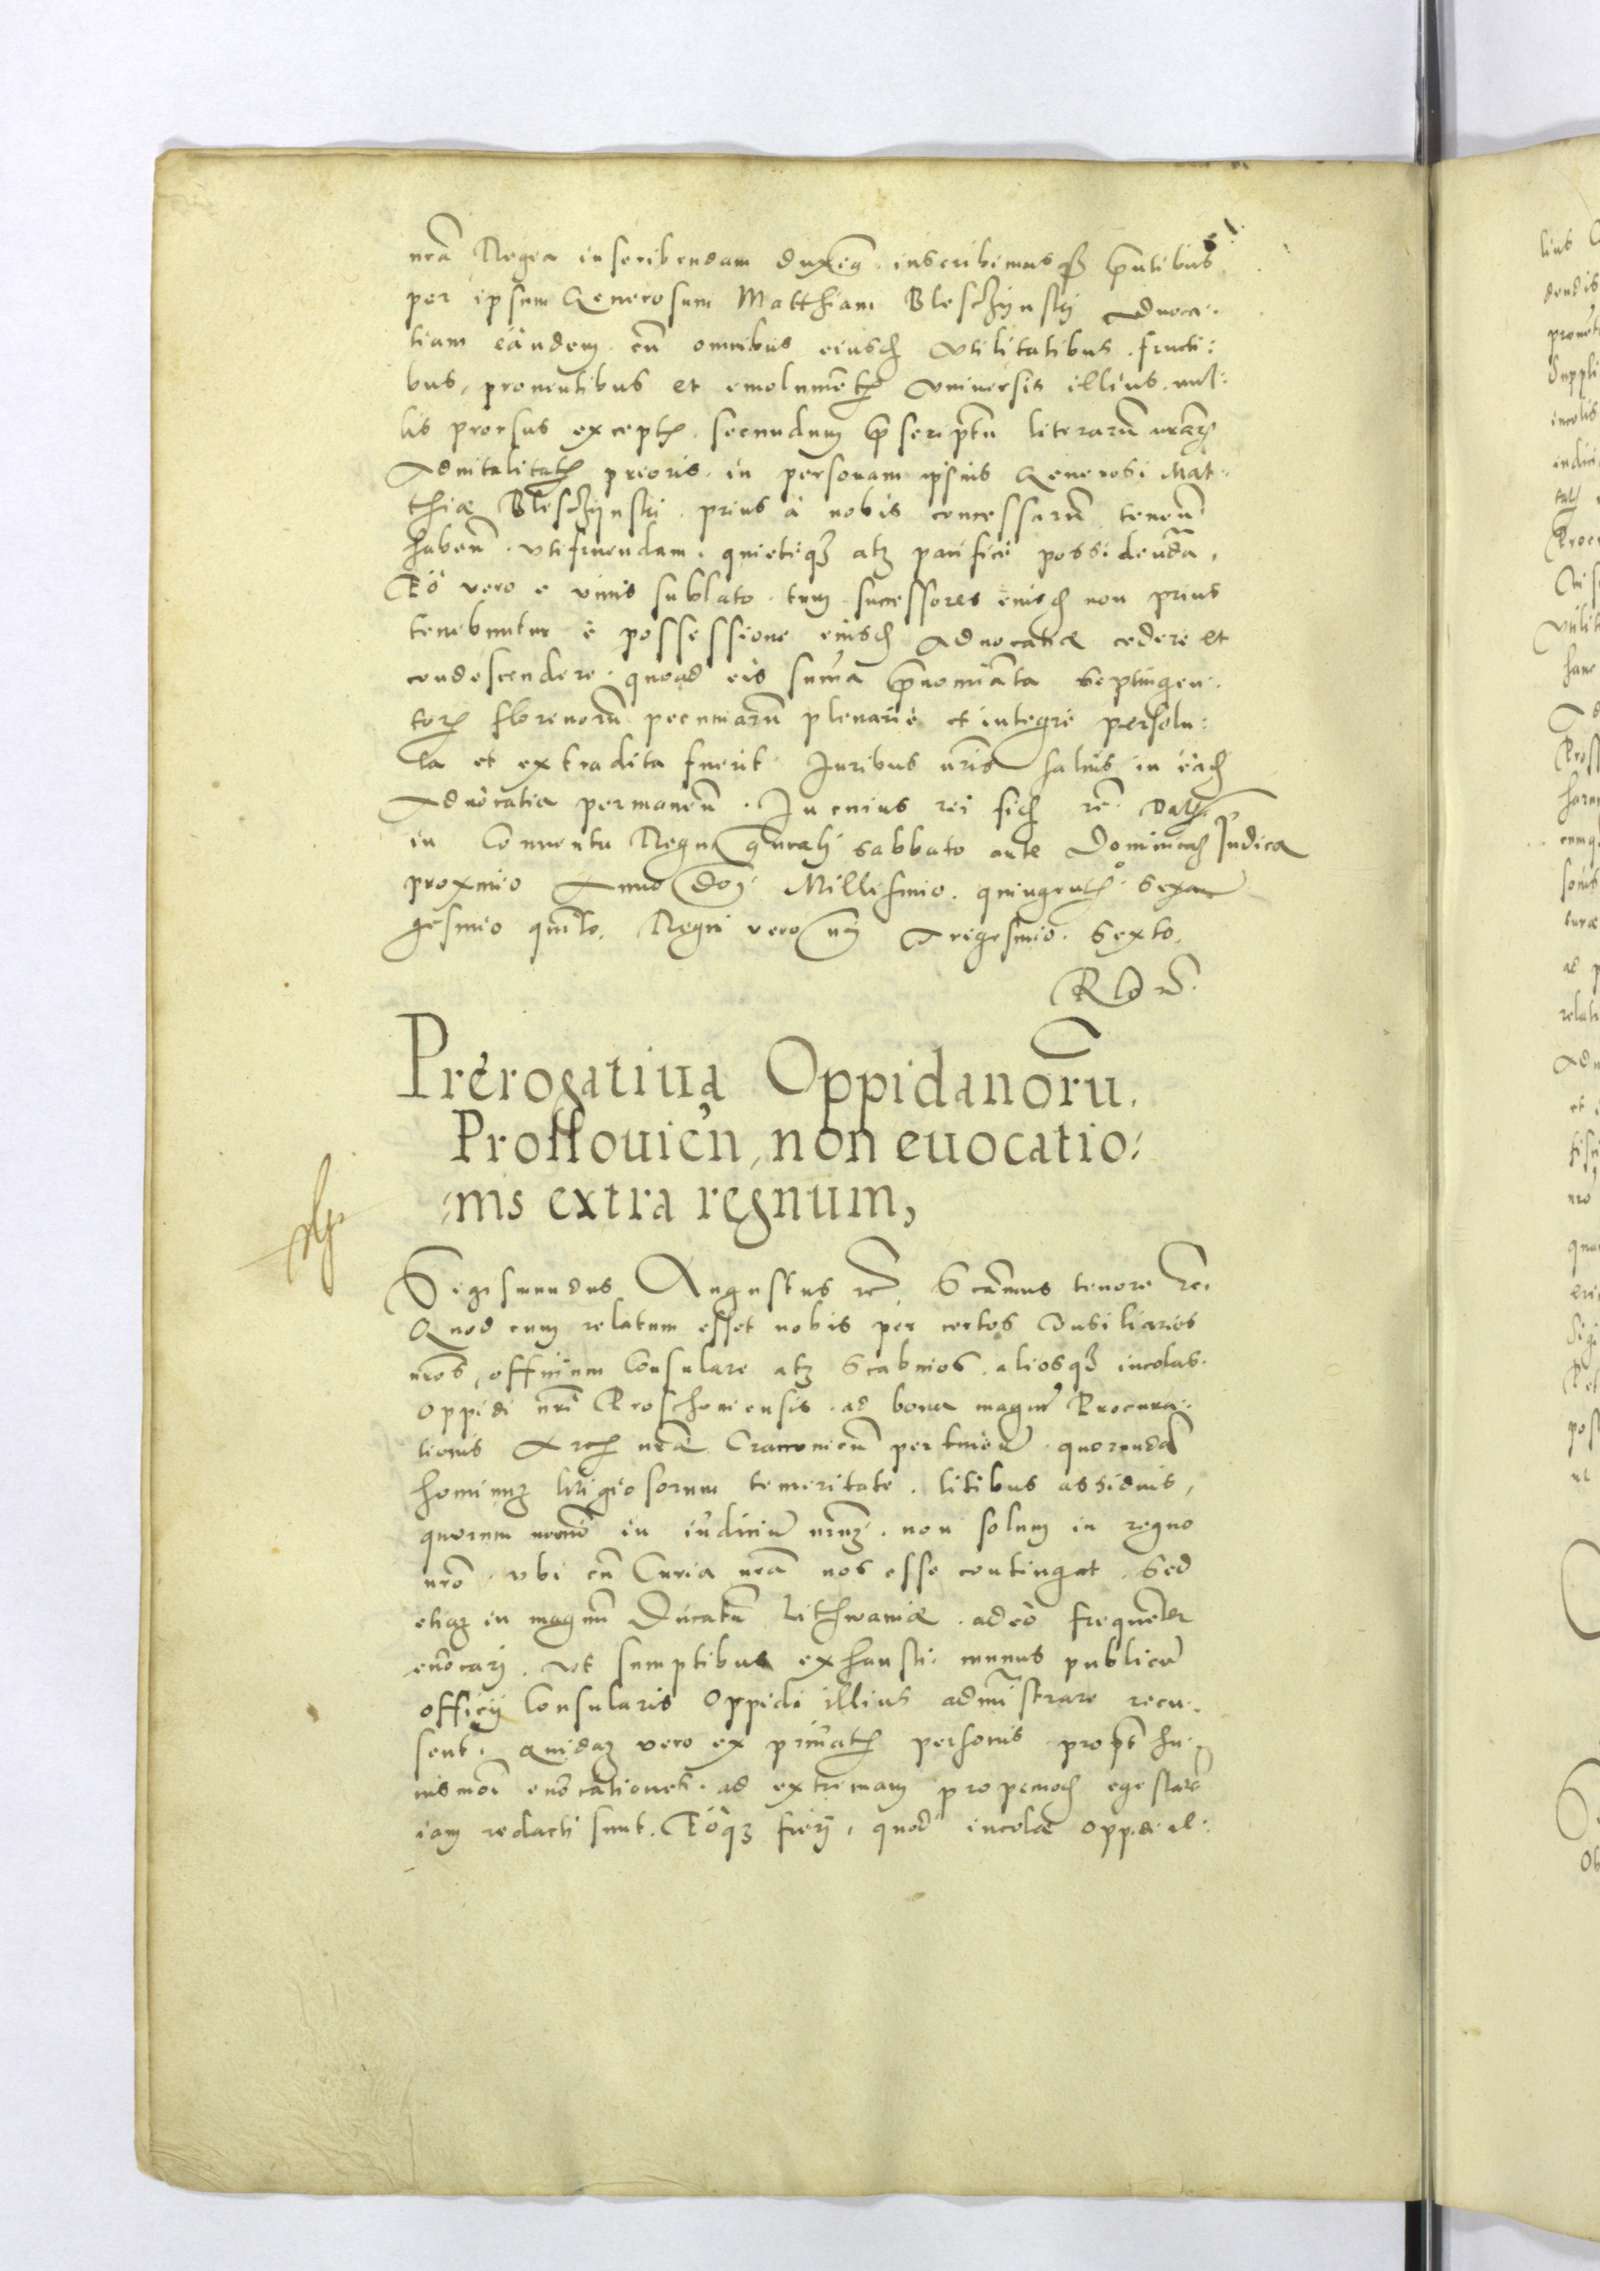 nrã Regia inscribendam duximꝰ. inscribimusqꝫ pñtibus
per ipsum Generosum Matthiam Bleschÿnskÿ aduoca-
tiam eandem cũ omnibus eiusdẽ vtilitatibus. fructi:
bus, prouentibus et emolumẽtꝭ vniuersis illius. nul:
lis prorsus exceptꝭ. secundum pscriptũ literarũ nrãrꝫ
aduitalitatꝭ prioris. in personam ipsius Generosi Mat:
thiæ Bleschÿnski. prius à nobis concessarũ tenen̄
haben̄. vtifruendam. quieteqꝫ atqꝫ pacificè possidendã.
Eò vero e viuis sublato. tum successores eiusdẽ non prius
tenebuntur è possessione eiusdẽ aduocatiæ cedere et
condescendere. quoad eis sum̃a pnomiãta septingen:
torꝫ florenorũ pecuniarũ plenariè et integrè persolu:
ta et extradita fuerit. Juribus nr̃is saluis in eadẽ
Aduocatia permanen̄. In cuius rei fidẽ rc̃. Datꝭ
in Conuentu Regni gñrali sabbato ante Dominicã Judica
proximo Anno Doñ. Millesimo. quingentꝭᵒ. sexa
gesimo quinto. Regni vero nr̃i Trigesimo. Sexto.
Prerogatiua Oppidanorũ.
Prossouieñ, non euocatio:
:nis extra regnum,
Sigismundus Augustus rc̃. Scãmus tenore rc̃.
Quod cum relatum esset nobis per certos Cõsiliarios
nr̃os, officium Consulare atqꝫ Scabinos. aliosqꝫ incolas.
oppidi nr̃i Proschouiensis. ad bona magnæ Procura:
tionis Arcꝭ nr̃æ Cracouien̄ pertinen̄. quorundã
hominuꝫ litigiosorum temeritate. litibus assiduis,
quorum noīe in iudiciũ nr̃uꝫ. non solum in regno
nr̃o. vbi cũ Curia nr̃a nos esse contingat. Sed
etiaꝫ in magnũ Ducatũ Lithwaniæ. adeò frequẽter
euocarj. vt sumptibus exhausti. munus publicũ
officij Consularis oppidi illius administrare recu:
sent. Quidaꝫ vero ex priuatꝭ personis propt̃ hu:
iusmoi euocationes. ad extremam propemodũ egestatẽ
iam redacti sunt. Eòqꝫ fierj, quod incolæ opp. il: